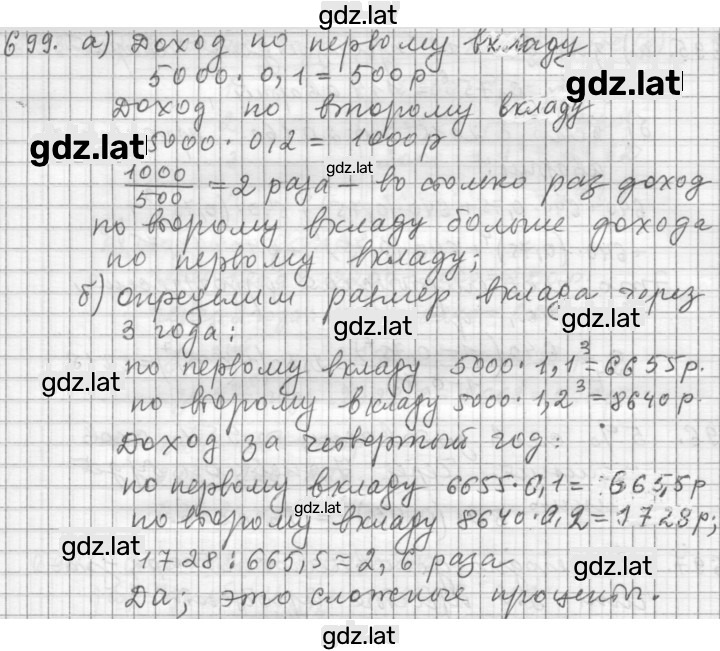 gdz.lat
699. а) Доход по первому вкладу
5000 · 0,1 = 500 р
gdz.lat
Доход по второму вкладу
gdz.lat 5000 · 0,2 = 1000 р
gdz.lat
1000/500 = 2 раза – во столько раз доход
по второму вкладу больше дохода
по первому вкладу;
б) Определим размер вклада через
gdz.lat gdz.lat
3 года:
по первому вкладу 5000 · 1,1³ = 6655 р.
gdz.lat
по второму вкладу 5000 · 1,2³ = 8640 р.
Доход за четвертый год:
по первому вкладу 6655 · 0,1 = 665,5 р
gdz.lat
по второму вкладу 8640 · 0,2 = 1728 р;
gdz.lat
1728 : 665,5 = 2,6 раза
gdz.lat
Да; это сложные проценты.
gdz.lat